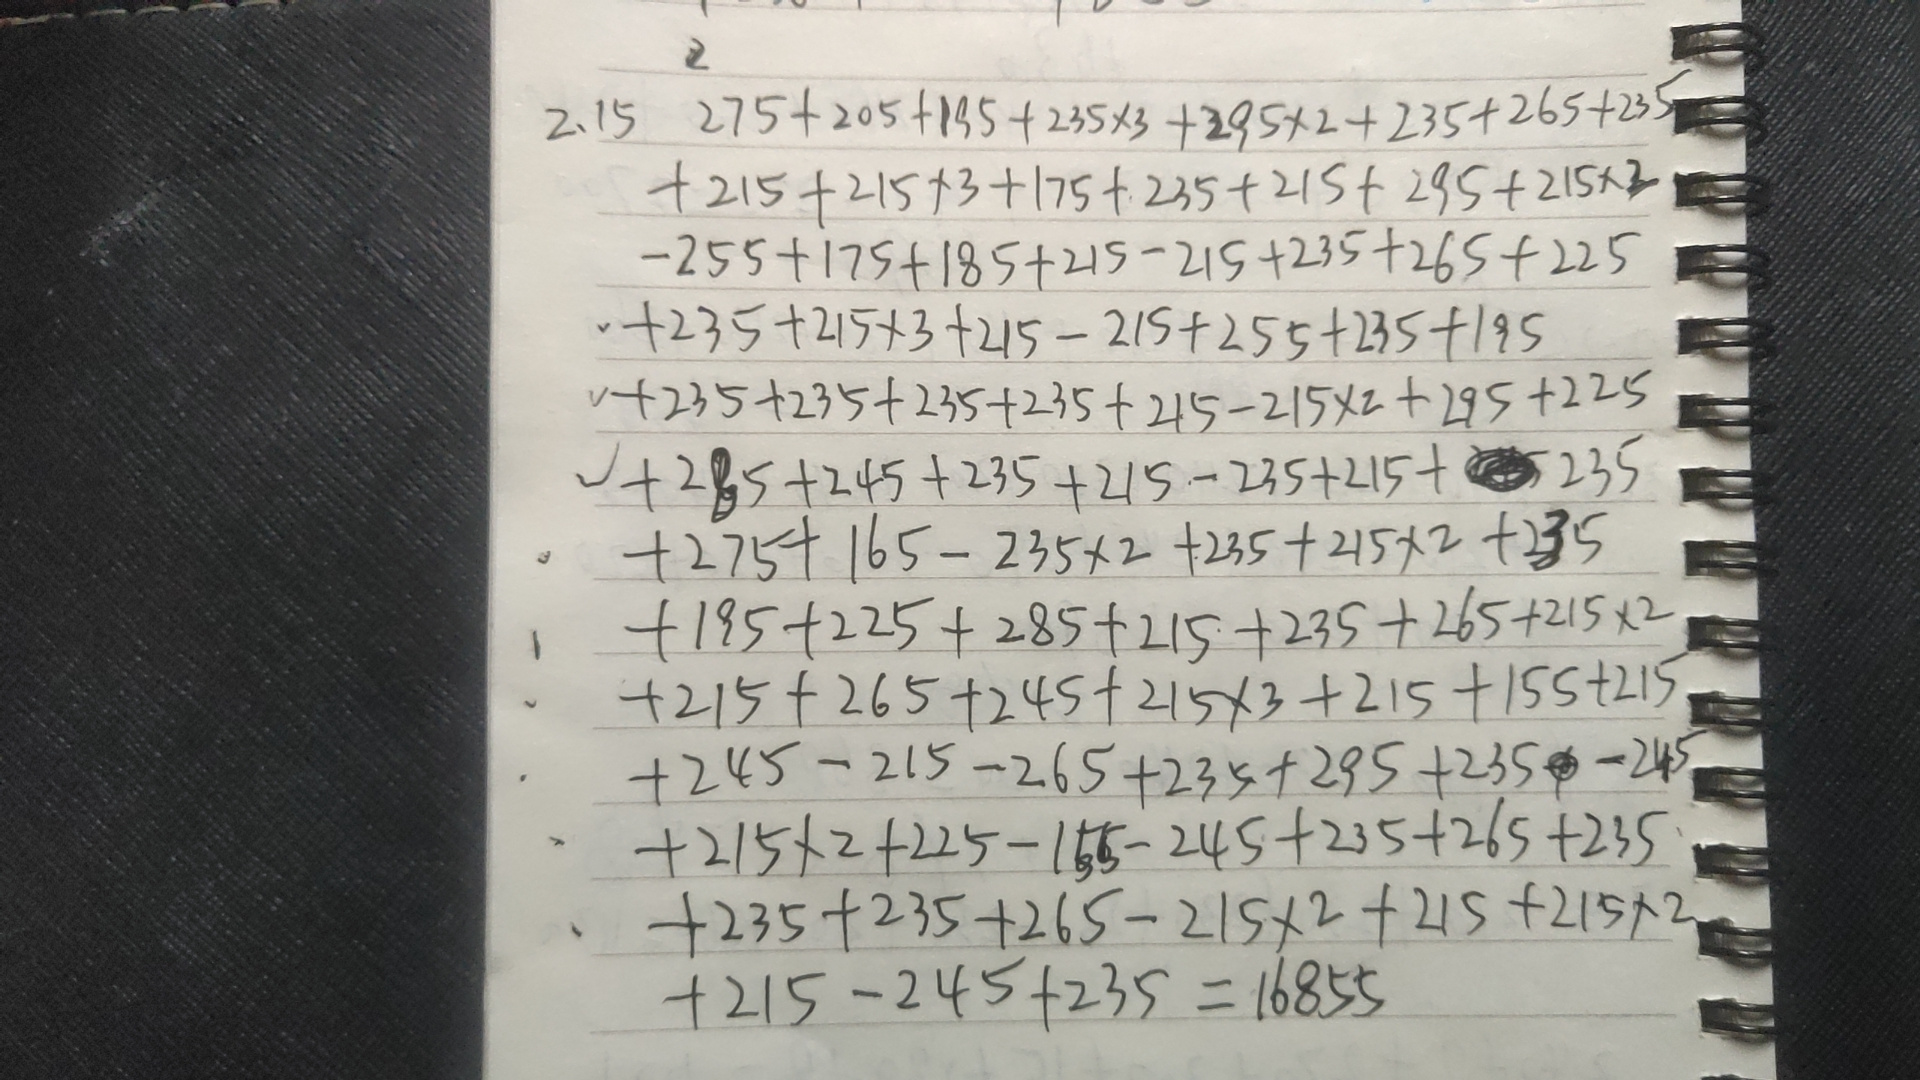 2
2.15 275+205+195+235×3+295×2+235+265+235
+215+215×3+175+235+215+295+215×2
-255+175+185+215-215+235+265+225
+235+215×3+215-215+255+235+195
+235+235+235+235+215-215×2+295+225
+285+245+235+215-235+215+235
+275+165-235×2+235+215×2+235
+195+225+285+215+235+265+215×2
+215+265+245+215×3+215+155+215
+245-215-265+235+295+235-245
+215×2+225-155-245+235+265+235
+235+235+265-215×2+215+215×2
+215-245+235=16855